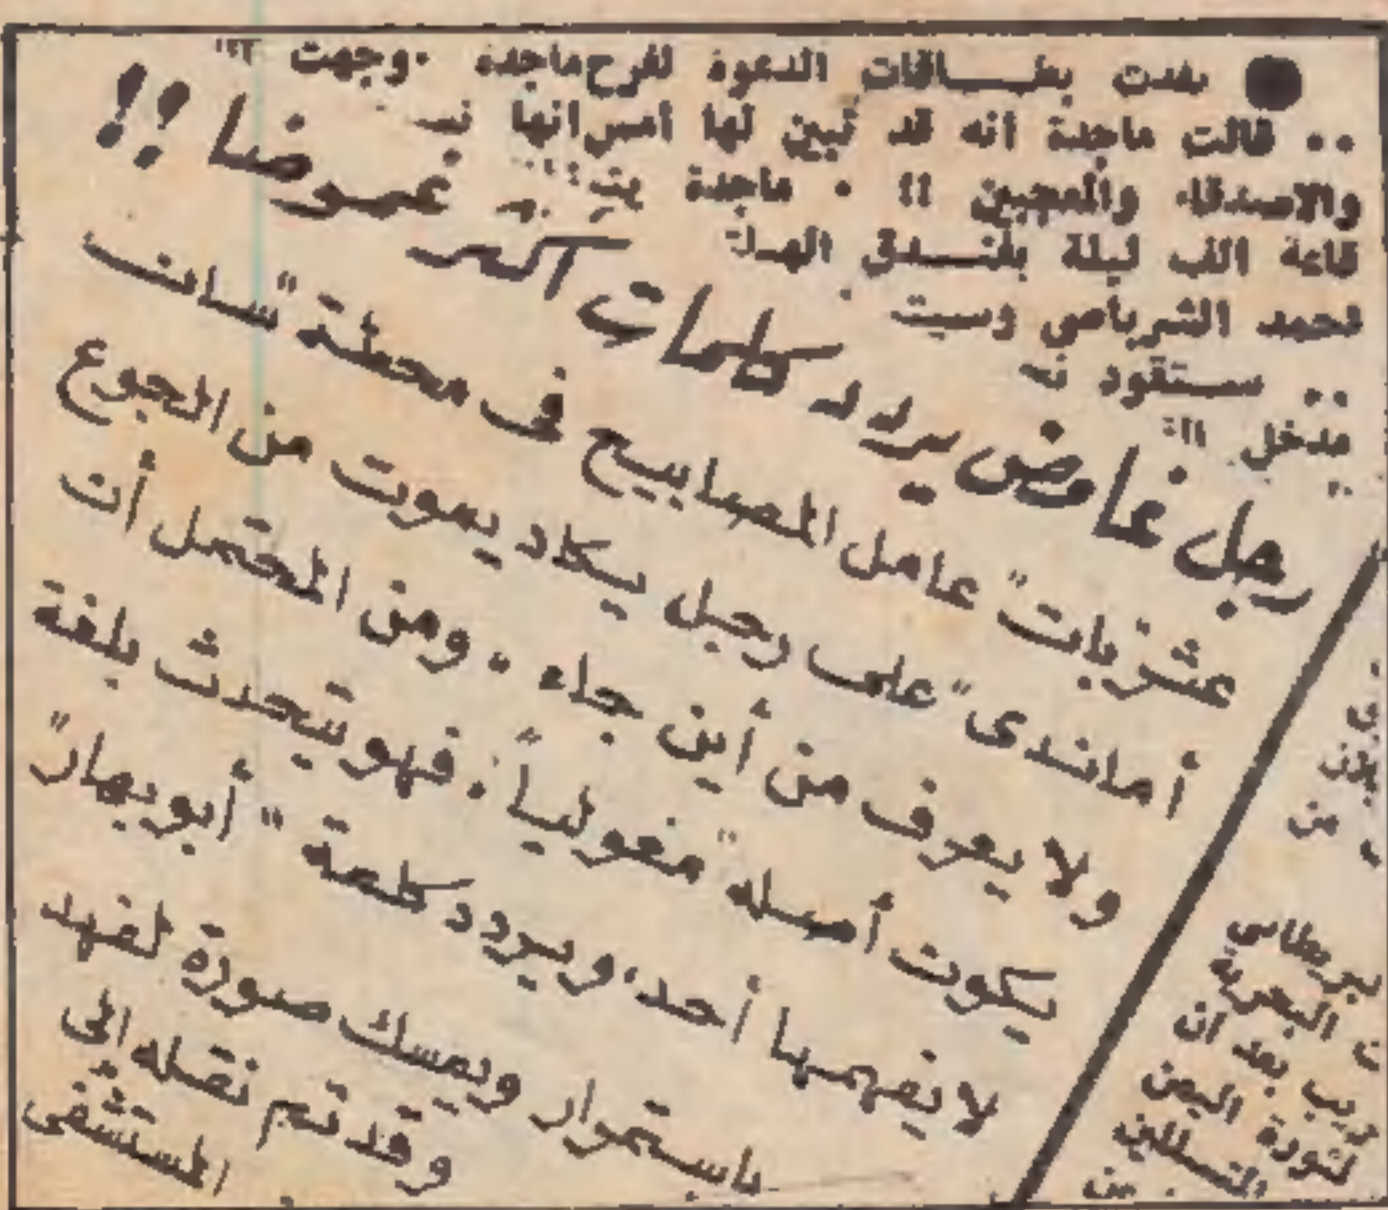 نفدت بطاقات الدعوة لفرح ماجدة . وجهت
.. قالت ماجدة أنه قد تبين لها أمس انها
والاصدقاء والمعجبين !! . ماجدة
قاعة الف ليلة بفنـدق
محمد الشرباصي وست
.. ستقود
مدخل
رجل غامض يردد كلمات أكثر غموضا !!
عثر بات" عامل المصابيح فى محطة "سانت
أماندى" على رجل يكاد يموت من الجوع
ولا يعرف من أين جاء . ومن المحتمل أن
يكون أصله "مغوليا" . فهو يتحدث بلغة
لا يفهمها أحد، ويردد كلمة "أبو بهار"
باستمرار ويمسك صورة لفهد
وقد تم نقله إلى
المستشفى
من
بريطانى
ت البحرية
ريب بعد ان
لثورة اليمن
المتسللين
من